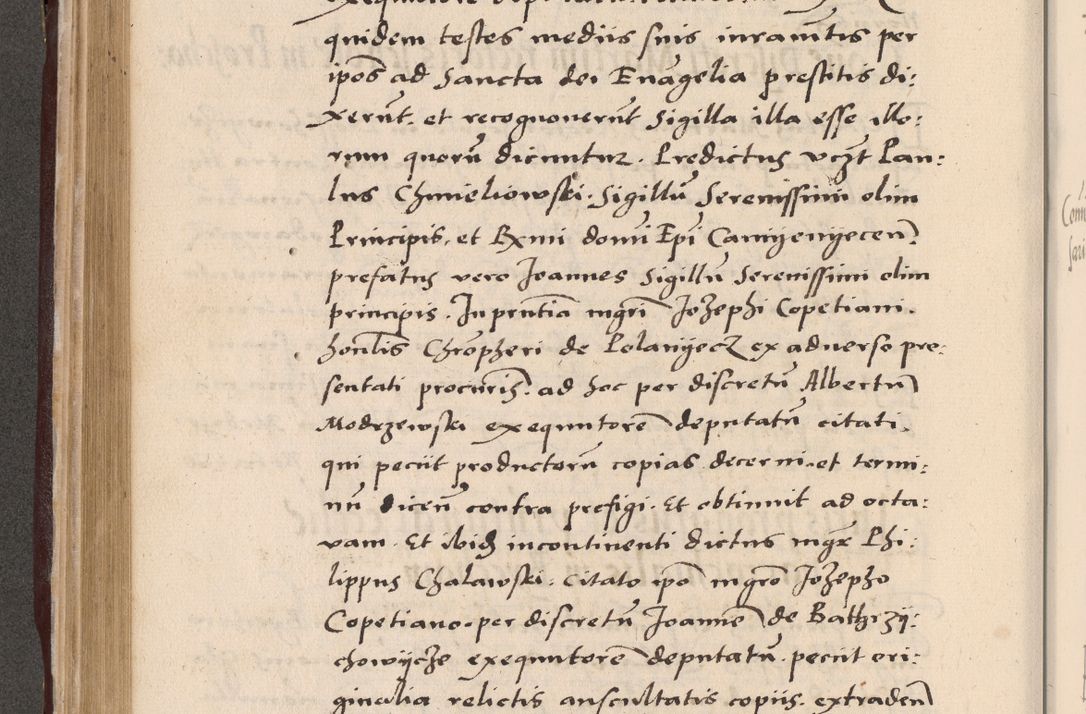 quidem testes mediis suis iuramentis per
ipos ad Sancta dei Euãgelia prestitis di:
xerũt et recognouerũt sigilla illa esse illo:
rum quorũ dicuntur. Predictus vczt Pau:
lus Chmieliowski. Sigillũ Serenissimi olim
Principis. et Rxmi domi Epi Camyenyecen̄.
prefatus vero Joannes Sigillũ Serenissimi olim
principis. In pñtia mgri Jozephi Copetiani.
honlis Chropheri de Polanyecz ex aduerso pre:
sentati procuris. ad hoc per discretũ Albertũ
Modrzewski exequutorē deputatũ citati.
qui peciit productorũ copias decerni. et termi:
nũ dicen̄ contra prefigi. Et obtinuit ad octa:
uam. Et ibid incontinenti dictus mgr Phi:
lippus Chalawski. citato ipõ mgrõ Jozepho
Copetiano. per discretũ Joannē de Bathrzy:
chowycze exequutorē deputatũ. peciit ori:
ginalia relictis auscultatis copiis. extraden̄